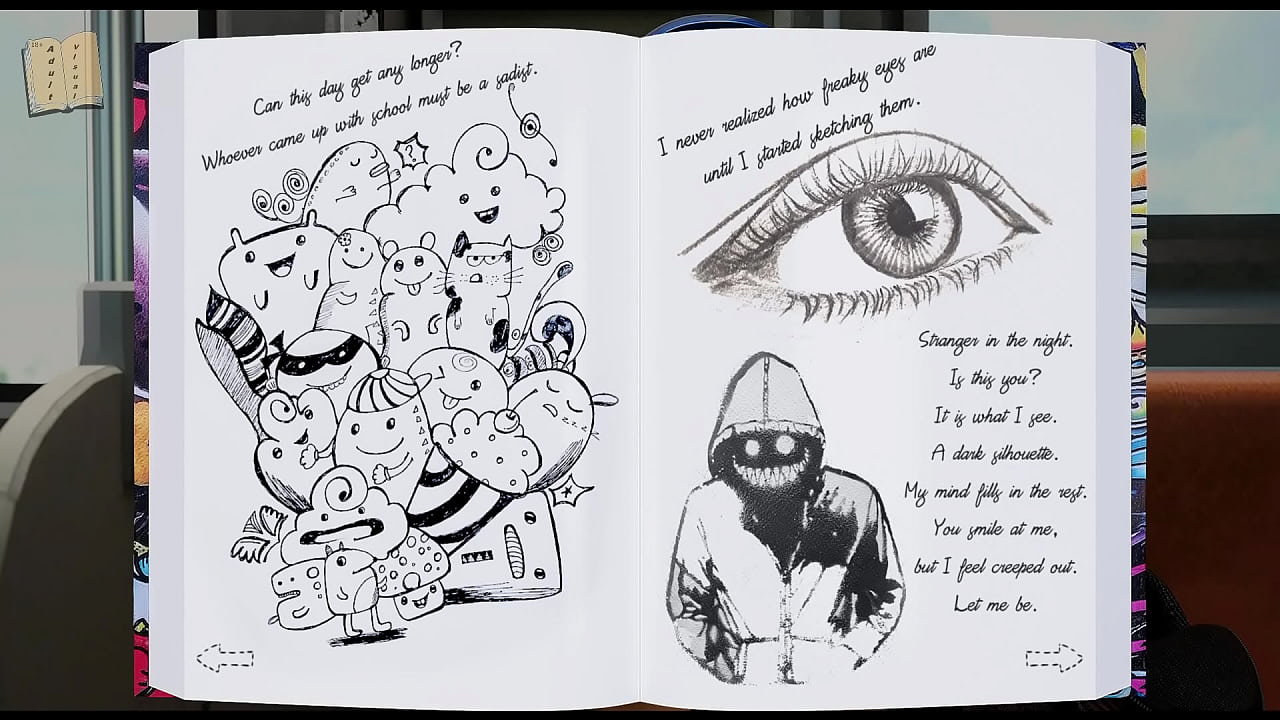 18+
Adult
Visual
Can this day get any longer?
Whoever came up with school must be a sadist.
?
I never realized how freaky eyes are
until I started sketching them.
Stranger in the night.
Is this you?
It is what I see.
A dark silhouette.
My mind fills in the rest.
You smile at me,
but I feel creeped out.
Let me be.